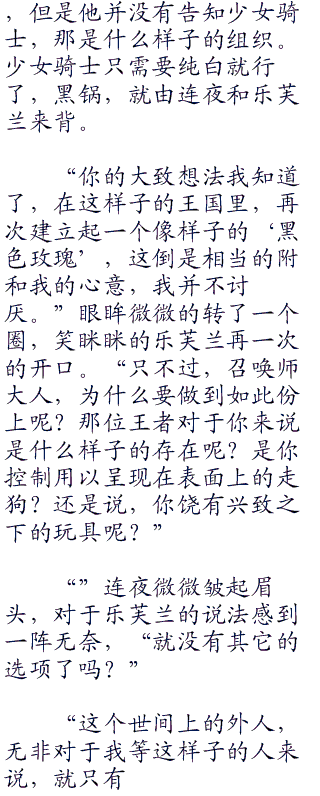 ，但是他并没有告知少女骑
士，那是什么样子的组织。
少女骑士只需要纯白就行
了，黑锅，就由连夜和乐芙
兰来背。
“你的大致想法我知道
了，在这样子的王国里，再
次建立起一个像样子的‘黑
色玫瑰’，这倒是相当的附
和我的心意，我并不讨
厌。”眼眸微微的转了一个
圈，笑眯眯的乐芙兰再一次
的开口。“只不过，召唤师
大人，为什么要做到如此份
上呢？那位王者对于你来说
是什么样子的存在呢？是你
控制用以呈现在表面上的走
狗？还是说，你饶有兴致之
下的玩具呢？”
“”连夜微微皱起眉
头，对于乐芙兰的说法感到
一阵无奈，“就没有其它的
选项了吗？”
“这个世间上的外人，
无非对于我等这样子的人来
说，就只有